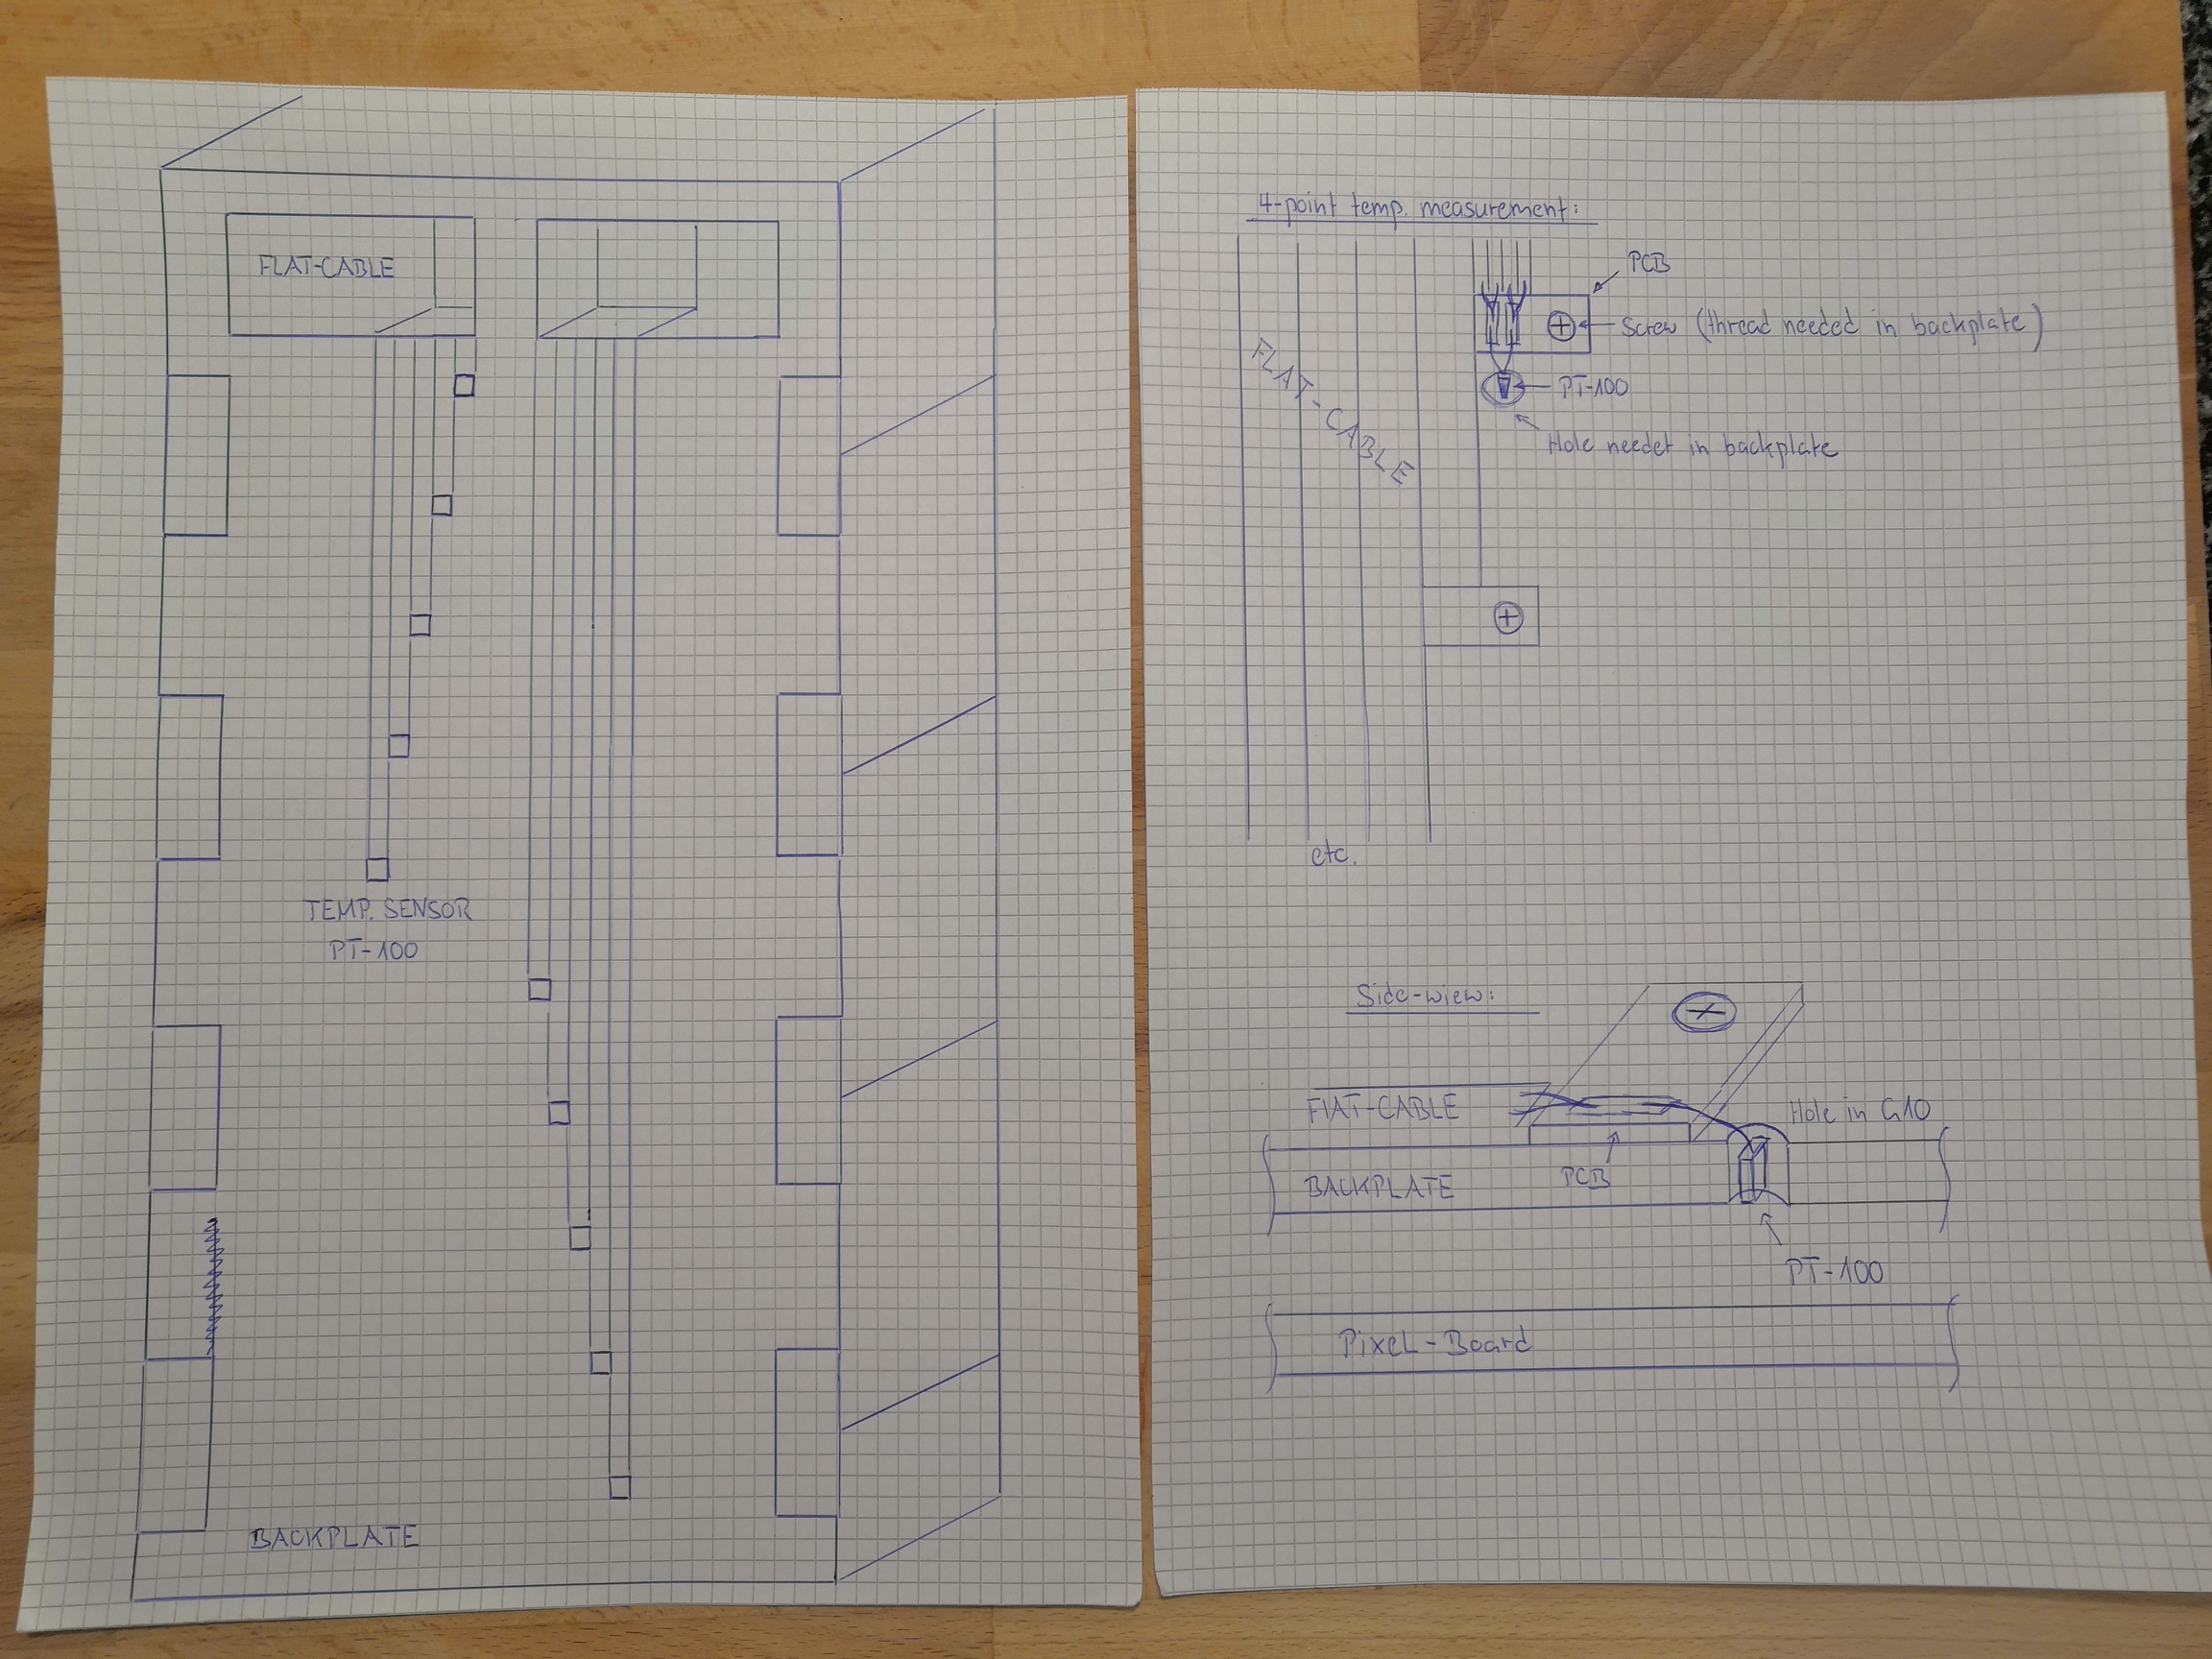 FLAT-CABLE
TEMP. SENSOR
PT-100
BACKPLATE
4-point temp. measurement:
PCB
Screw (thread needed in backplate)
PT-100
Hole needet in backplate
FLAT-CABLE
etc.
Side-wiew:
FLAT-CABLE
Hole in G10
BACKPLATE
PCB
PT-100
PixeL-Board